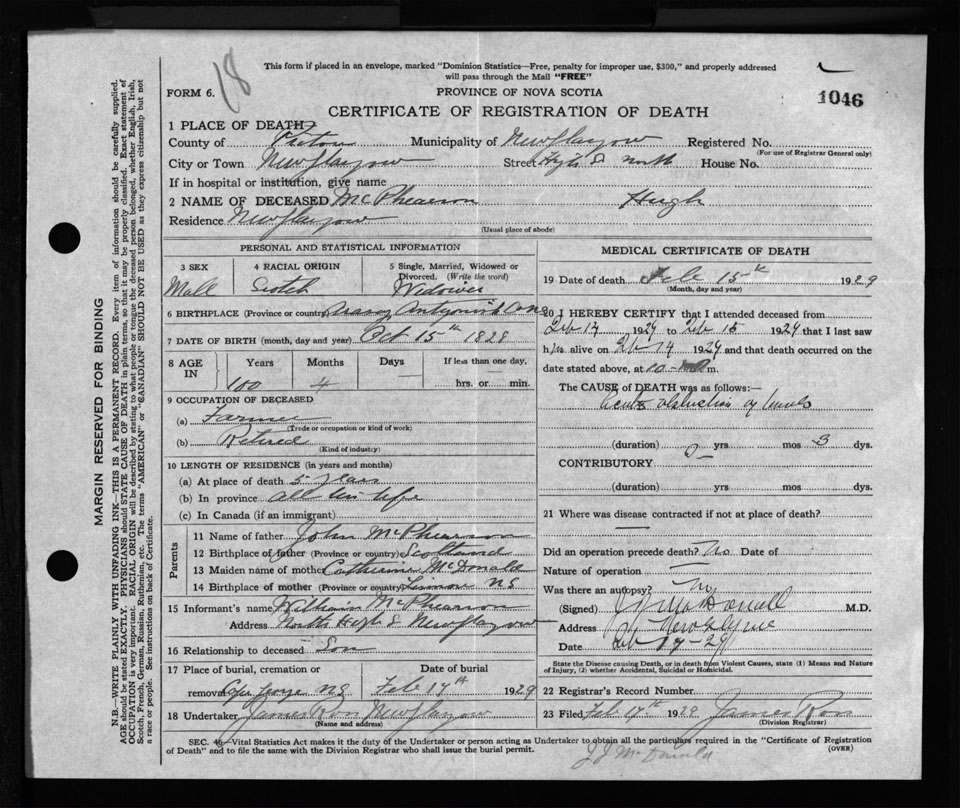 18
This form if placed in an envelope, marked "Dominion Statistics—Free, penalty for improper use, $300," and properly addressed
will pass through the Mail "FREE"
FORM 6.
PROVINCE OF NOVA SCOTIA
1046
CERTIFICATE OF REGISTRATION OF DEATH
1 PLACE OF DEATH
County of Pictou Municipality of New Glasgow Registered No.
(For use of Registrar General only)
City or Town New Glasgow Street Hyts S North House No.
If in hospital or institution, give name
2 NAME OF DECEASED McPhearson Hugh
Residence New Glasgow
(Usual place of abode)
PERSONAL AND STATISTICAL INFORMATION
3 SEX 4 RACIAL ORIGIN 5 Single, Married, Widowed or Divorced. (Write the word)
Male Scotch Widower
6 BIRTHPLACE (Province or country)
7 DATE OF BIRTH (month, day and year) Oct 15th 1828
8 AGE IN Years Months Days If less than one day,
100 4 hrs. or min.
9 OCCUPATION OF DECEASED
(a) Farmer
(Trade or occupation or kind of work)
(b) Retired
(Kind of industry)
10 LENGTH OF RESIDENCE (in years and months)
(a) At place of death 5 years
(b) In province all his life
(c) In Canada (if an immigrant)
Parents
11 Name of father John McPhearson
12 Birthplace of father (Province or country) Scotland
13 Maiden name of mother Catherine McDonald
14 Birthplace of mother (Province or country) NS
15 Informant's name William McPhearson
Address North Hyts S New Glasgow
16 Relationship to deceased Son
17 Place of burial, cremation or Date of burial
removal Cape George N.S Feb 17th 1929
18 Undertaker James Ross New Glasgow
(Name and address)
MEDICAL CERTIFICATE OF DEATH
19 Date of death Feb 15th 1929
(Month, day and year)
20 I HEREBY CERTIFY that I attended deceased from
Feb 14 1929 to Feb 15 1929 that I last saw
him alive on Feb 14 1929 and that death occurred on the
date stated above, at 10 m.
The CAUSE of DEATH was as follows:—
Acute obstruction of bowels
(duration) yrs mos 3 dys.
CONTRIBUTORY 0
(duration) yrs mos dys.
21 Where was disease contracted if not at place of death?
Did an operation precede death? No Date of
Nature of operation
Was there an autopsy? No
(Signed) J J McDonald M.D.
Address New Glasgow
Date Feb 17-29
State the Disease causing Death, or in death from Violent Causes, state (1) Means and Nature
of Injury, (2) whether Accidental, Suicidal or Homicidal.
22 Registrar's Record Number
23 Filed Feb 17th 1929 James Ross
(Division Registrar)
SEC. 46—Vital Statistics Act makes it the duty of the Undertaker or person acting as Undertaker to obtain all the particulars required in the "Certificate of Registration
of Death" and to file the same with the Division Registrar who shall issue the burial permit.
(OVER)
J J McDonald
MARGIN RESERVED FOR BINDING
N.B.—WRITE PLAINLY WITH UNFADING INK—THIS IS A PERMANENT RECORD. Every item of information should be carefully supplied.
AGE should be stated EXACTLY. PHYSICIANS should STATE CAUSE OF DEATH in plain terms, so that it may be properly classified. Exact statement of
OCCUPATION is very important. RACIAL ORIGIN will be described by stating to what people or tongue the deceased person belonged, whether English, Irish,
Scotch, French, German, Russian, Ruthenian, etc. The terms "AMERICAN" or "CANADIAN" SHOULD NOT BE USED as they express citizenship but not
a race or people. See instructions on back of Certificate.